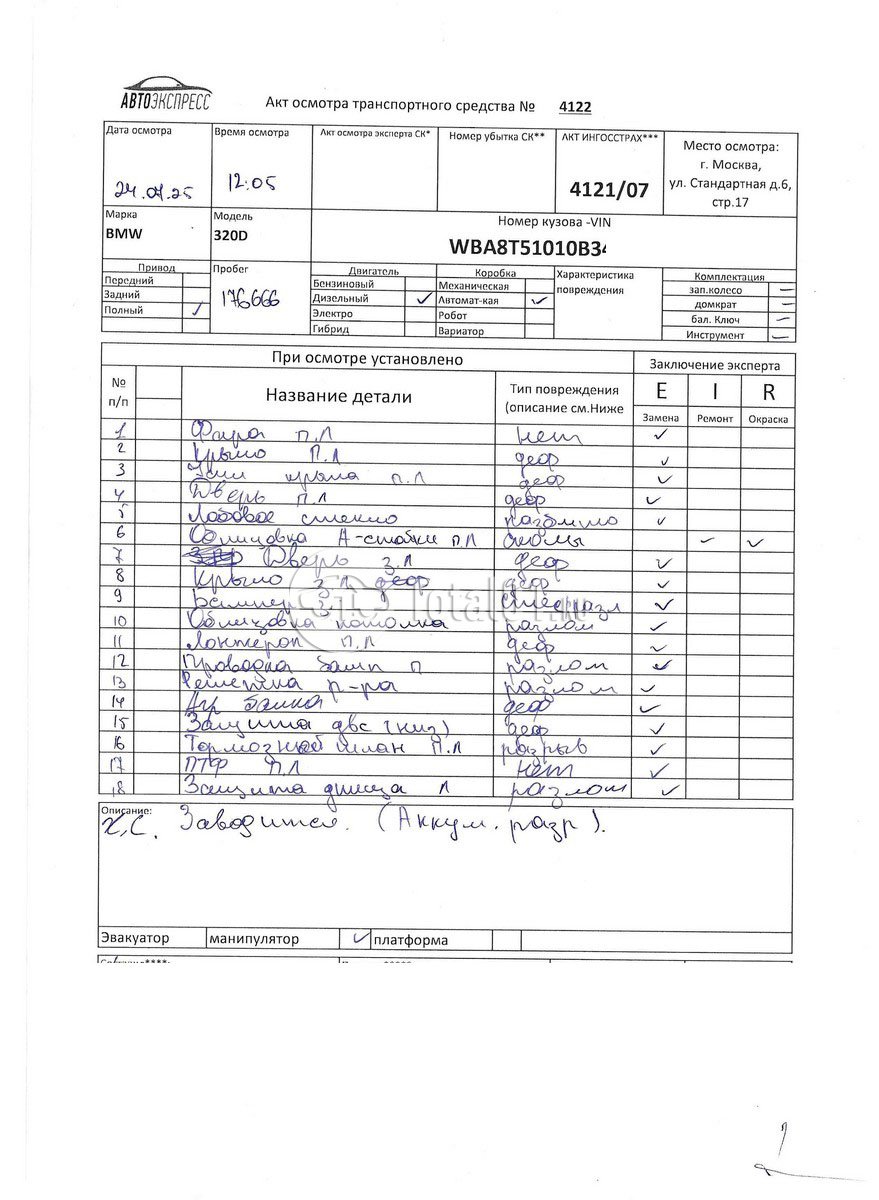 АВТОЭКСПРЕСС
Акт осмотра транспортного средства № 4122
Дата осмотра Время осмотра Акт осмотра эксперта СК* Номер убытка СК** АКТ ИНГОССТРАХ*** Место осмотра:
24.07.25 12:05 4121/07 г. Москва,
ул. Стандартная д.6,
стр.17
Марка Модель Номер кузова -VIN
BMW 320D WBA8T51010B34
Привод Пробег Двигатель Коробка Характеристика Комплектация
Передний Бензиновый Механическая повреждения зап.колесо –
Задний 176666 Дизельный ✓ Автомат-кая ✓ домкрат –
Полный ✓ Электро Робот бал. Ключ –
Гибрид Вариатор Инструмент –
При осмотре установлено Заключение эксперта
№ п/п Название детали Тип повреждения (описание см.Ниже E I R
Замена Ремонт Окраска
1 Фара п.л нет ✓
2 Крыло п.л деф ✓
3 крыла п.л деф ✓
4 Дверь п.л деф ✓
5 Лобовое стекло разбито ✓
6 Облицовка А-стойки п л сколы – ✓
7 Дверь з.л деф ✓
8 Крыло з.л деф деф ✓
9 Бампер з. ✓
10 Облицовка потолка разлом ✓
11 Лонжерон п.л деф ✓
12 Проводка бамп п разлом ✓
13 Решетка р-ра разлом ✓
14 балка деф ✓
15 Защита двс (низ) деф ✓
16 Тормозной шланг п.л разрыв ✓
17 ПТФ п.л нет ✓
18 Защита днища л разлом ✓
Total01.ru
Описание:
Х.С. Заводится. (Аккум. разр).
Эвакуатор манипулятор ✓ платформа